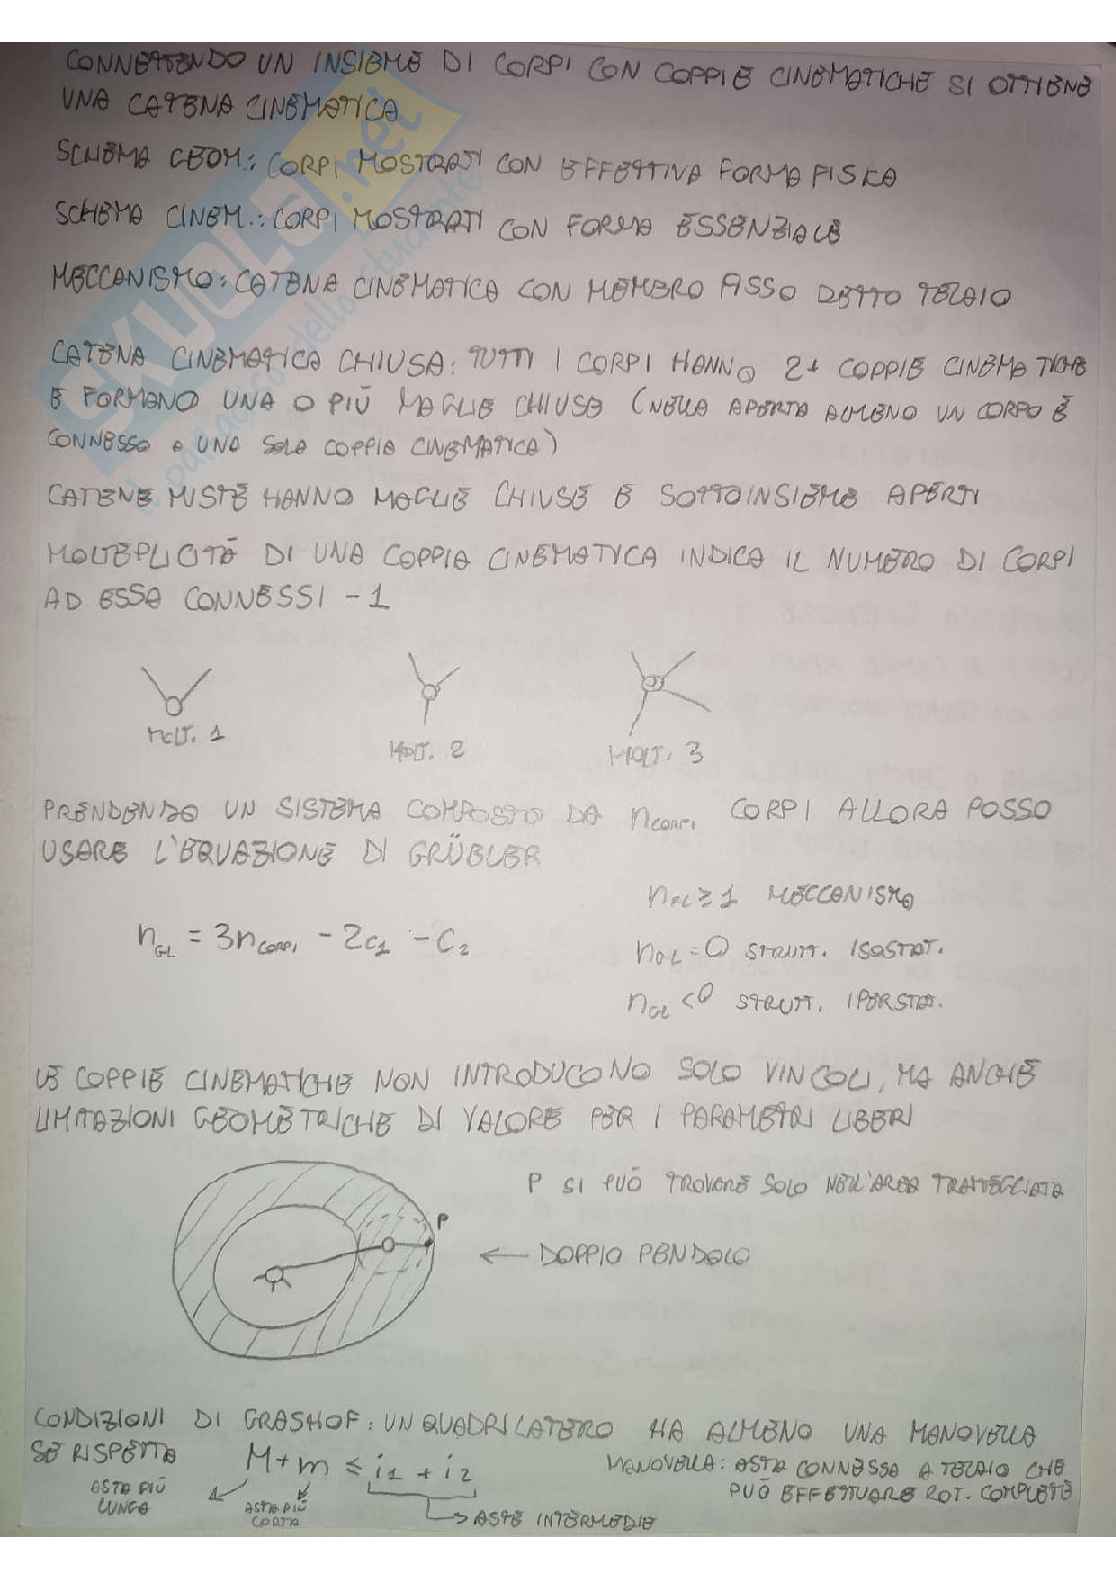 CONNETTENDO UN INSIEME DI CORPI CON COPPIE CINEMATICHE SI OTTIENE
UNA CATENA CINEMATICA
SCHEMA GEOM.: CORPI MOSTRATI CON EFFETTIVA FORMA FISICA
SCHEMA CINEM.: CORPI MOSTRATI CON FORMA ESSENZIALE
MECCANISMO: CATENA CINEMATICA CON MEMBRO FISSO DETTO TELAIO
CATENA CINEMATICA CHIUSA: TUTTI I CORPI HANNO 2+ COPPIE CINEMATICHE
E FORMANO UNA O PIÙ MAGLIE CHIUSE (NELLA APERTA ALMENO UN CORPO È
CONNESSO A UNA SOLA COPPIA CINEMATICA)
CATENE MISTE HANNO MAGLIE CHIUSE E SOTTOINSIEME APERTI
MOLTEPLICITÀ DI UNA COPPIA CINEMATICA INDICA IL NUMERO DI CORPI
AD ESSA CONNESSI - 1
MOLT. 1 MOLT. 2 MOLT. 3
PRENDENDO UN SISTEMA COMPOSTO DA n_CORPI CORPI ALLORA POSSO
USARE L'EQUAZIONE DI GRÜBLER
n_GL ≥ 1 MECCANISMO
n_GL = 3n_CORPI - 2C_1 - C_2
n_GL = 0 STRUTT. ISOSTAT.
n_GL < 0 STRUTT. IPERSTAT.
LE COPPIE CINEMATICHE NON INTRODUCONO SOLO VINCOLI, MA ANCHE
LIMITAZIONI GEOMETRICHE DI VALORE PER I PARAMETRI LIBERI
P SI PUÒ TROVARE SOLO NELL'AREA TRATTEGGIATA
P
← DOPPIO PENDOLO
CONDIZIONI DI GRASHOF: UN QUADRILATERO HA ALMENO UNA MANOVELLA
SE RISPETTA M + m ≤ i_1 + i_2 MANOVELLA: ASTA CONNESSA A TELAIO CHE
PUÒ EFFETTUARE ROT. COMPLETE
ASTA PIÙ
LUNGA
ASTA PIÙ
CORTA
→ ASTE INTERMEDIE
SKUOLA.net